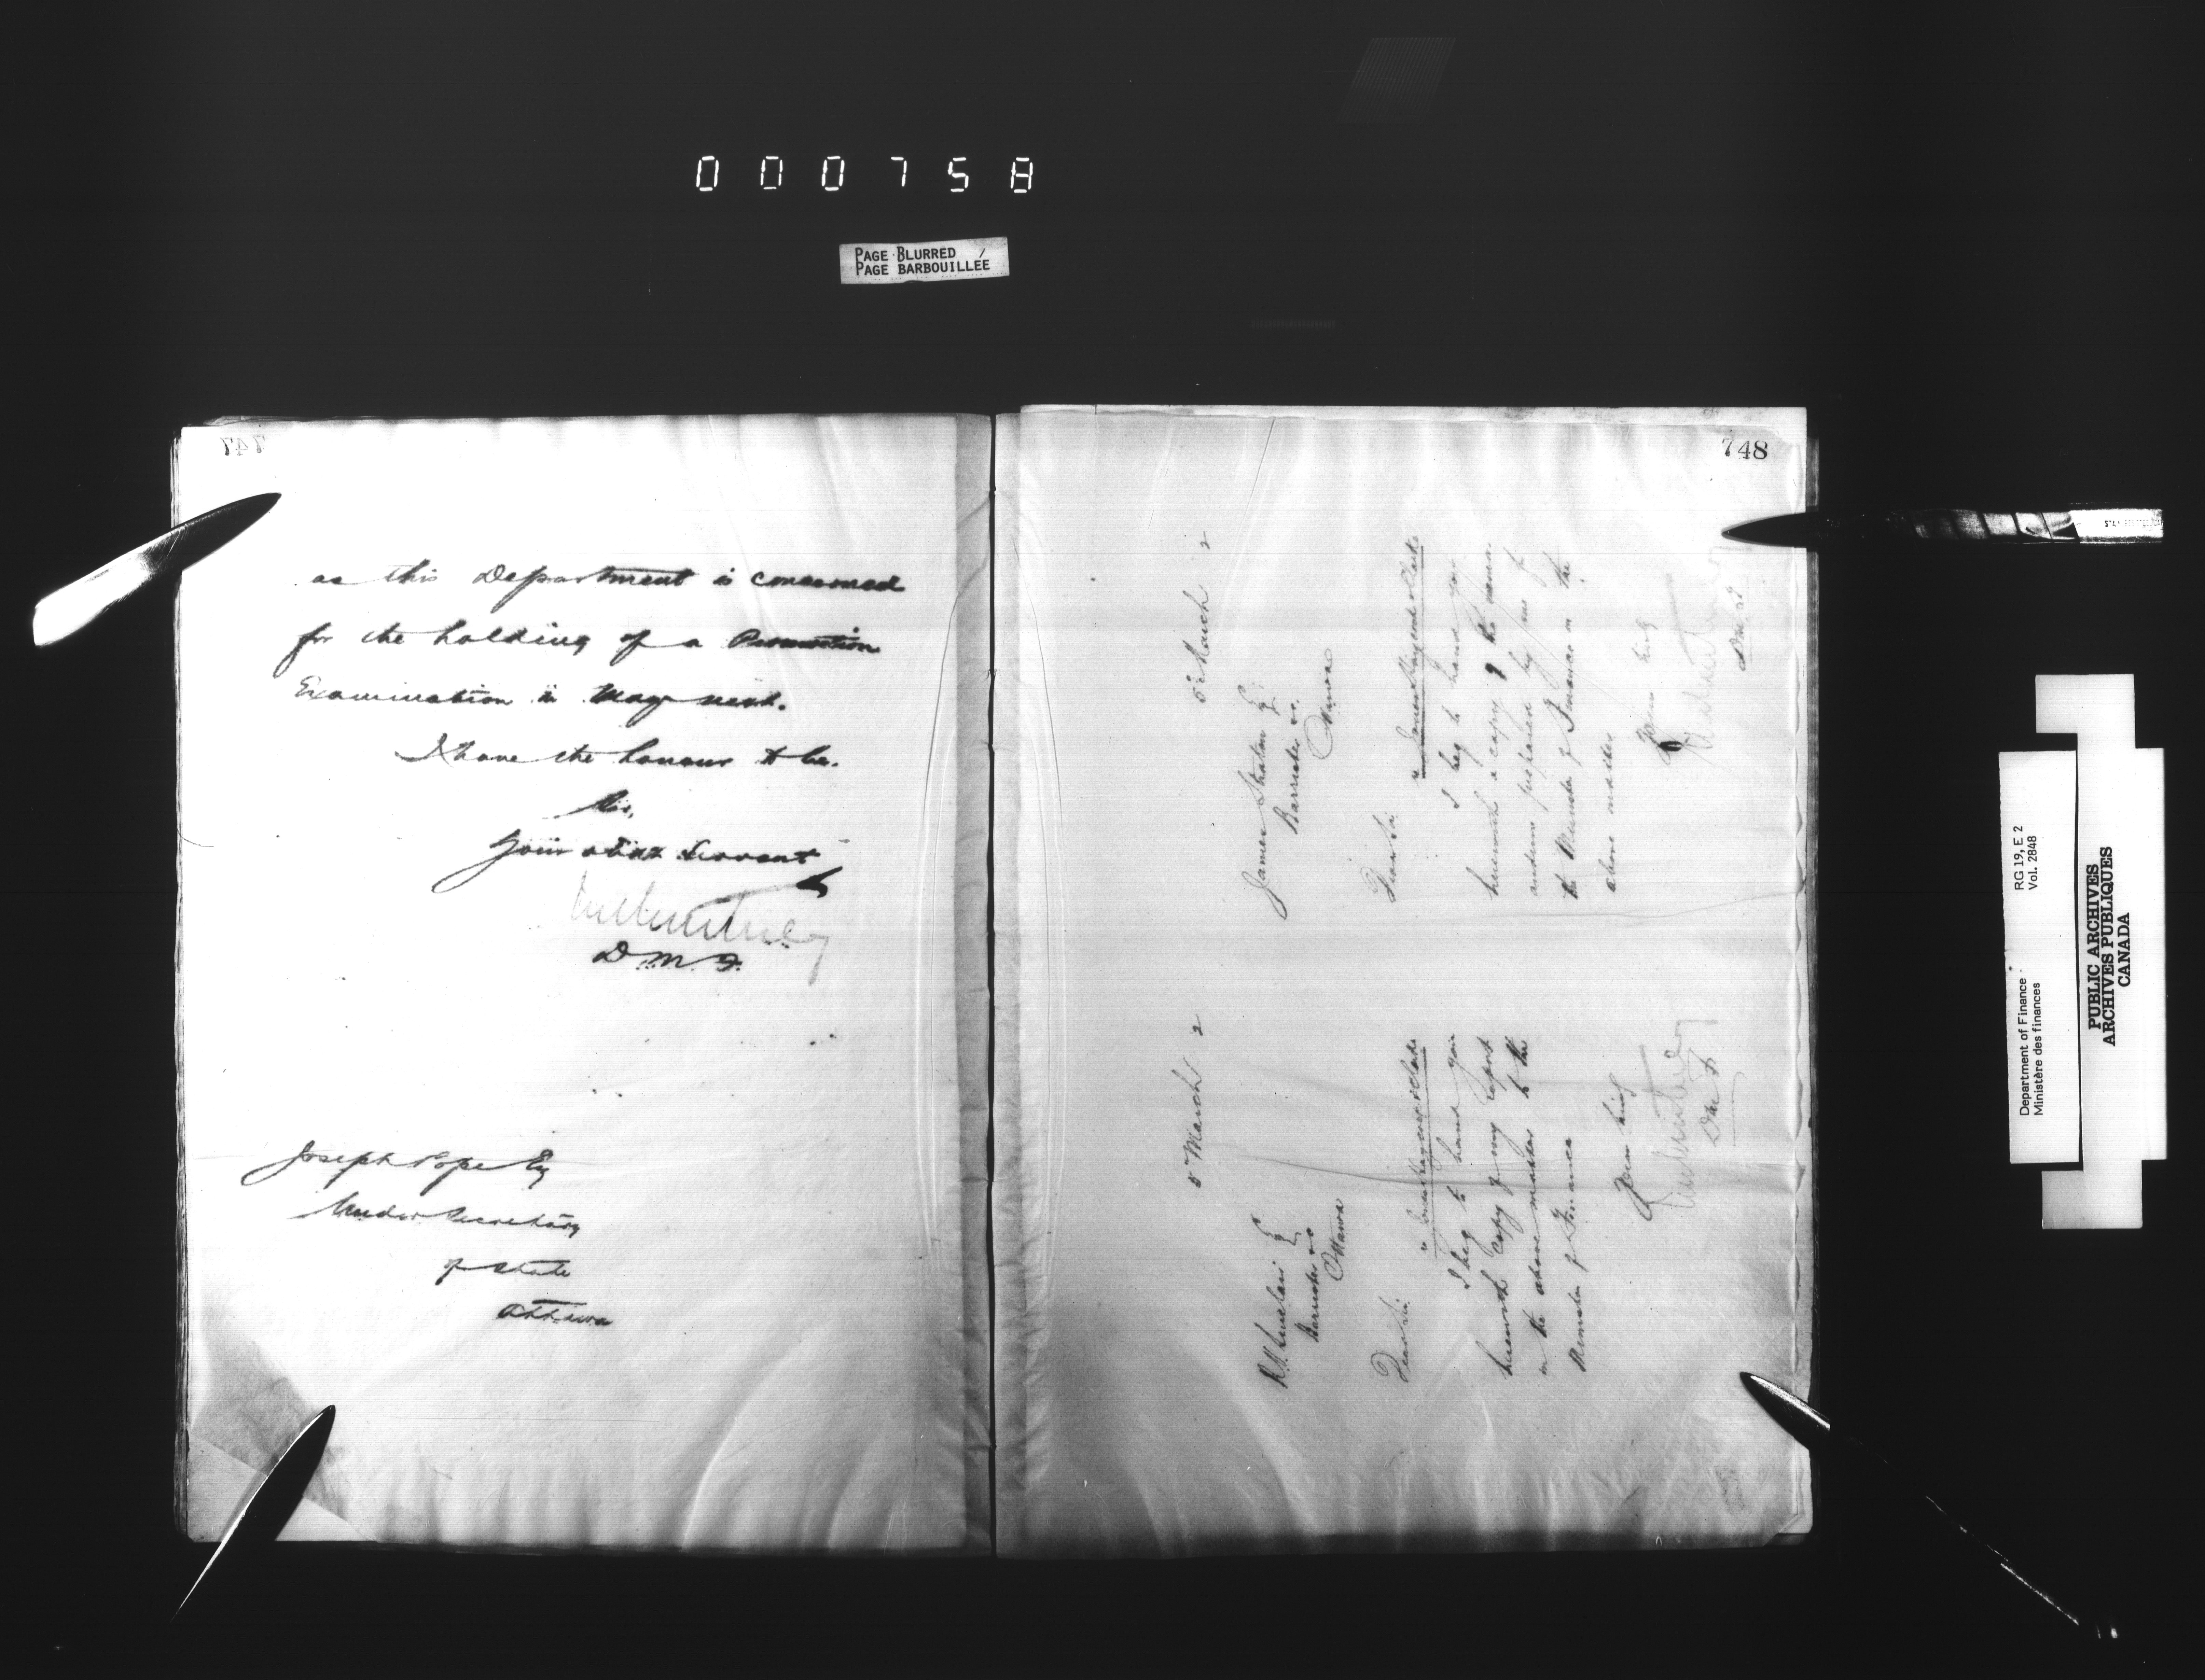 000758
PAGE BLURRED /
PAGE BARBOUILLÉE
747
as this Department is concerned
for the holding of a Promotion
Examination in May next.
I have the honour to be.
Sir,
Your obdt Servant
D.M.F.
Joseph Pope Esq
Under Secretary
of State
Ottawa
748
5 March 2
Barrister &c.
Ottawa
Dear Sir
I beg to hand you
herewith copy of my report
in the above matter to the
Minister of Finance
Yours truly
DMF
5 March 2
James Straton E
Barrister &c.
Ottawa
Dear Sir
I beg to hand you
herewith a copy of the memo-
randum prepared by me for
the Minister of Finance in the
above matter
Yours truly
RG 19, E 2
Vol. 2848
Department of Finance
Ministère des finances
PUBLIC ARCHIVES
ARCHIVES PUBLIQUES
CANADA